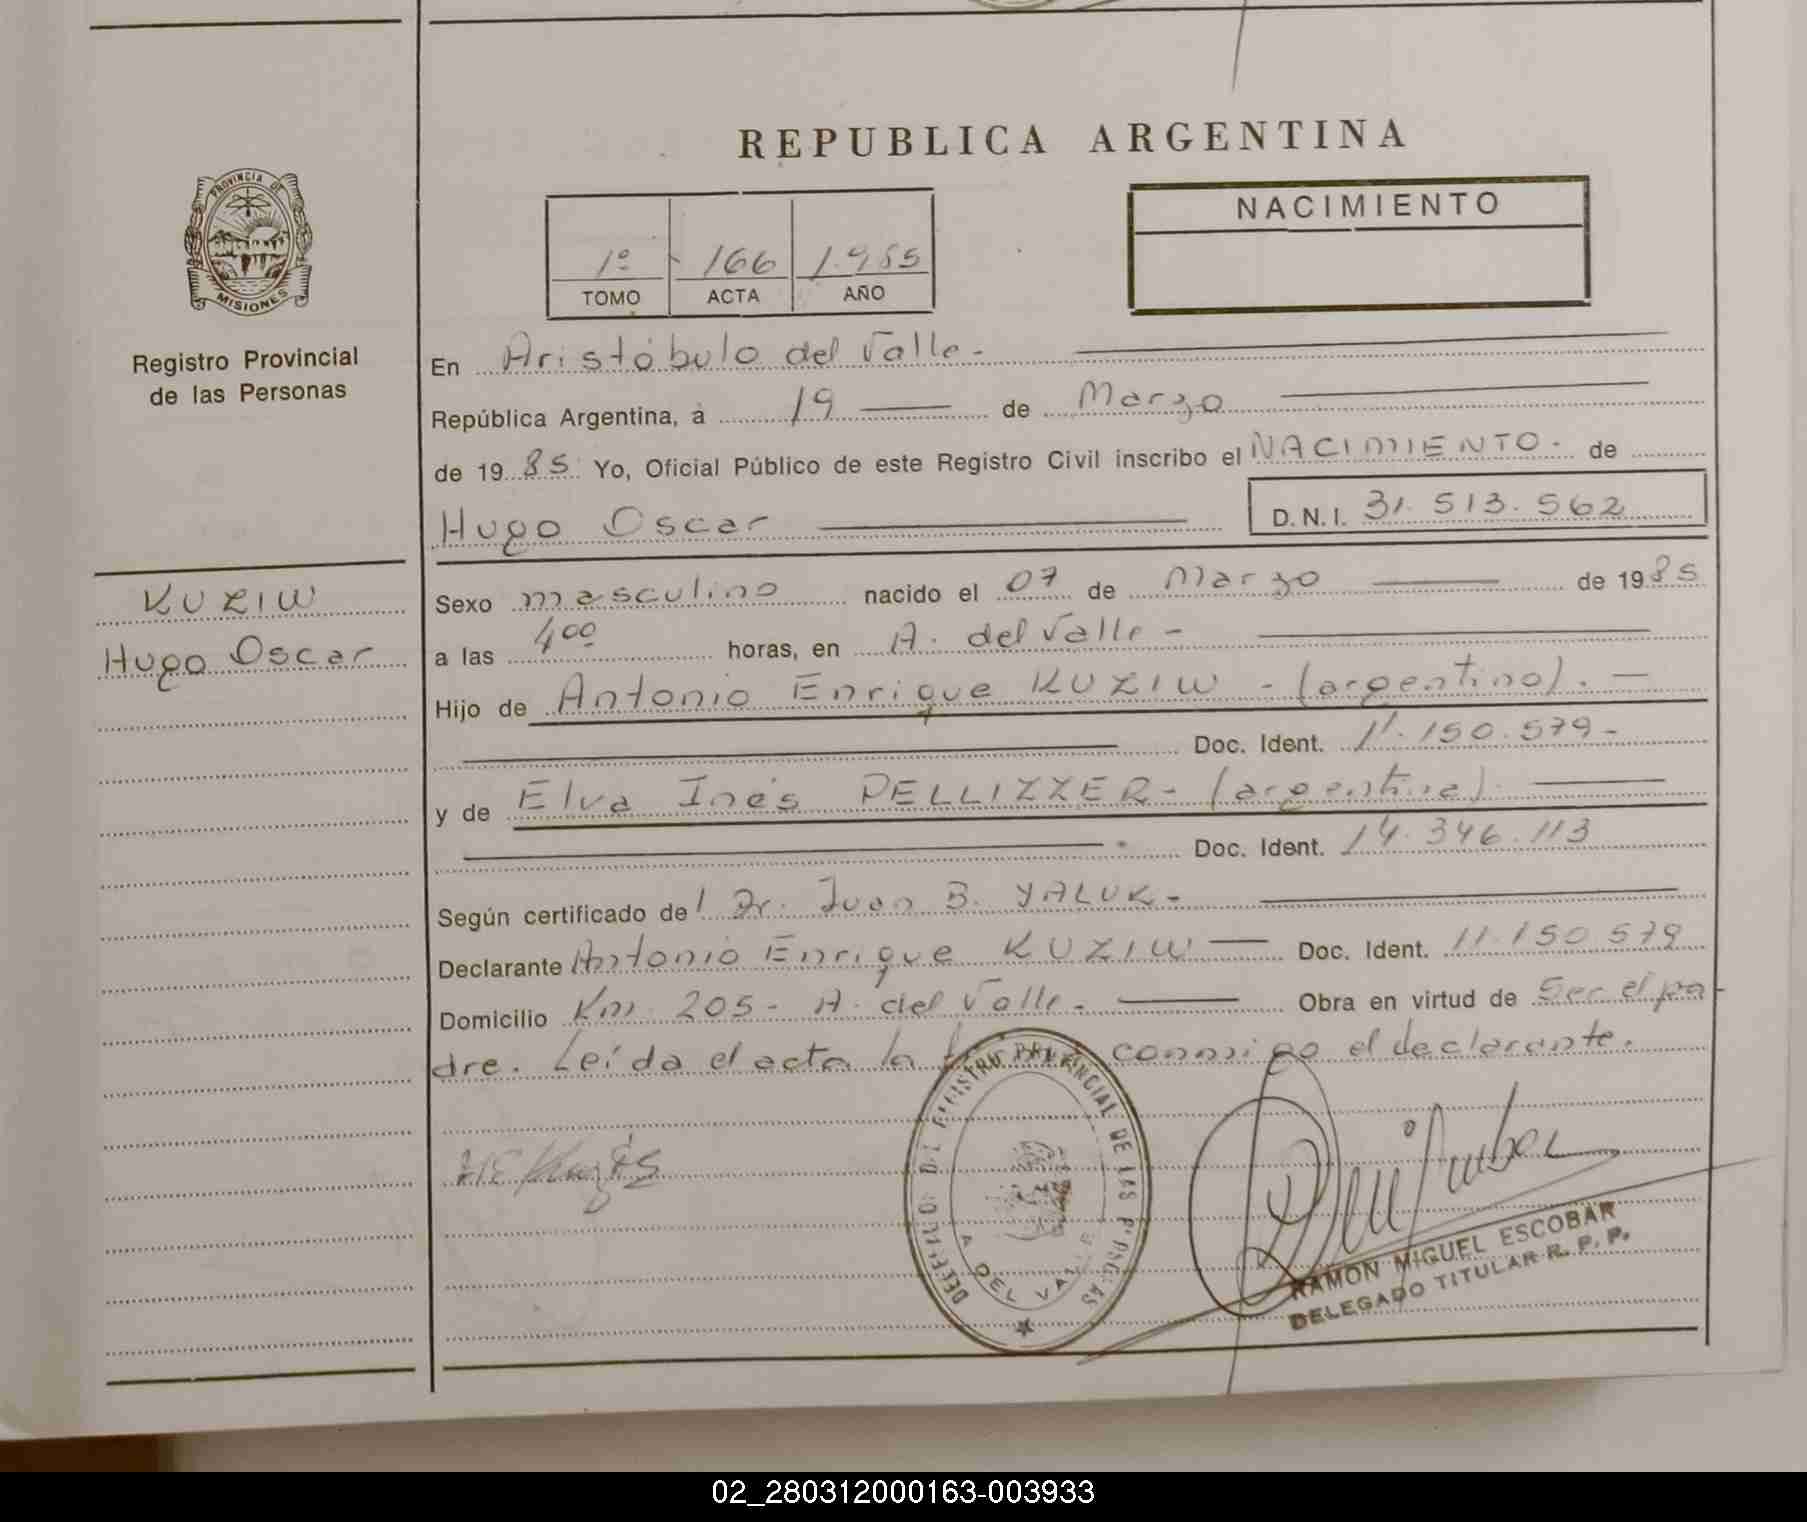 REPUBLICA ARGENTINA
PROVINCIA DE
MISIONES
Registro Provincial
de las Personas
1º 166 1.985
TOMO ACTA AÑO
NACIMIENTO
En Aristóbulo del Valle.-
República Argentina, a 19 de Marzo
de 1985. Yo, Oficial Público de este Registro Civil inscribo el NACIMIENTO. de
Hugo Oscar D.N.I. 31.513.562
KUZIW
Hugo Oscar
Sexo masculino nacido el 07 de Marzo de 1985
a las 4 00 horas, en A. del Valle -
Hijo de Antonio Enrique KUZIW - (argentino). -
Doc. Ident. 11.150.579-
y de Elva Inés PELLIZZER - (argentina).
Doc. Ident. 14.346.113
Según certificado del Dr. Juan B. YALUK-
Declarante Antonio Enrique KUZIW Doc. Ident. 11.150.579
Domicilio Km. 205- A. del Valle- Obra en virtud de Ser el pa-
dre. Leída el acta la conmigo el declarante.
REGISTRO PROVINCIAL DE LAS PERSONAS
A. DEL VALLE
RAMON MIGUEL ESCOBAR
DELEGADO TITULAR R. P. P.
02_280312000163-003933